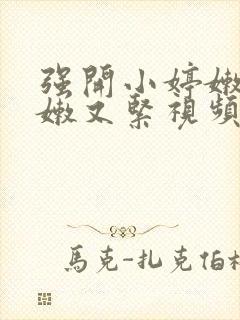 強開小婷嫩
嫩又緊視頻
馬克-扎克伯格